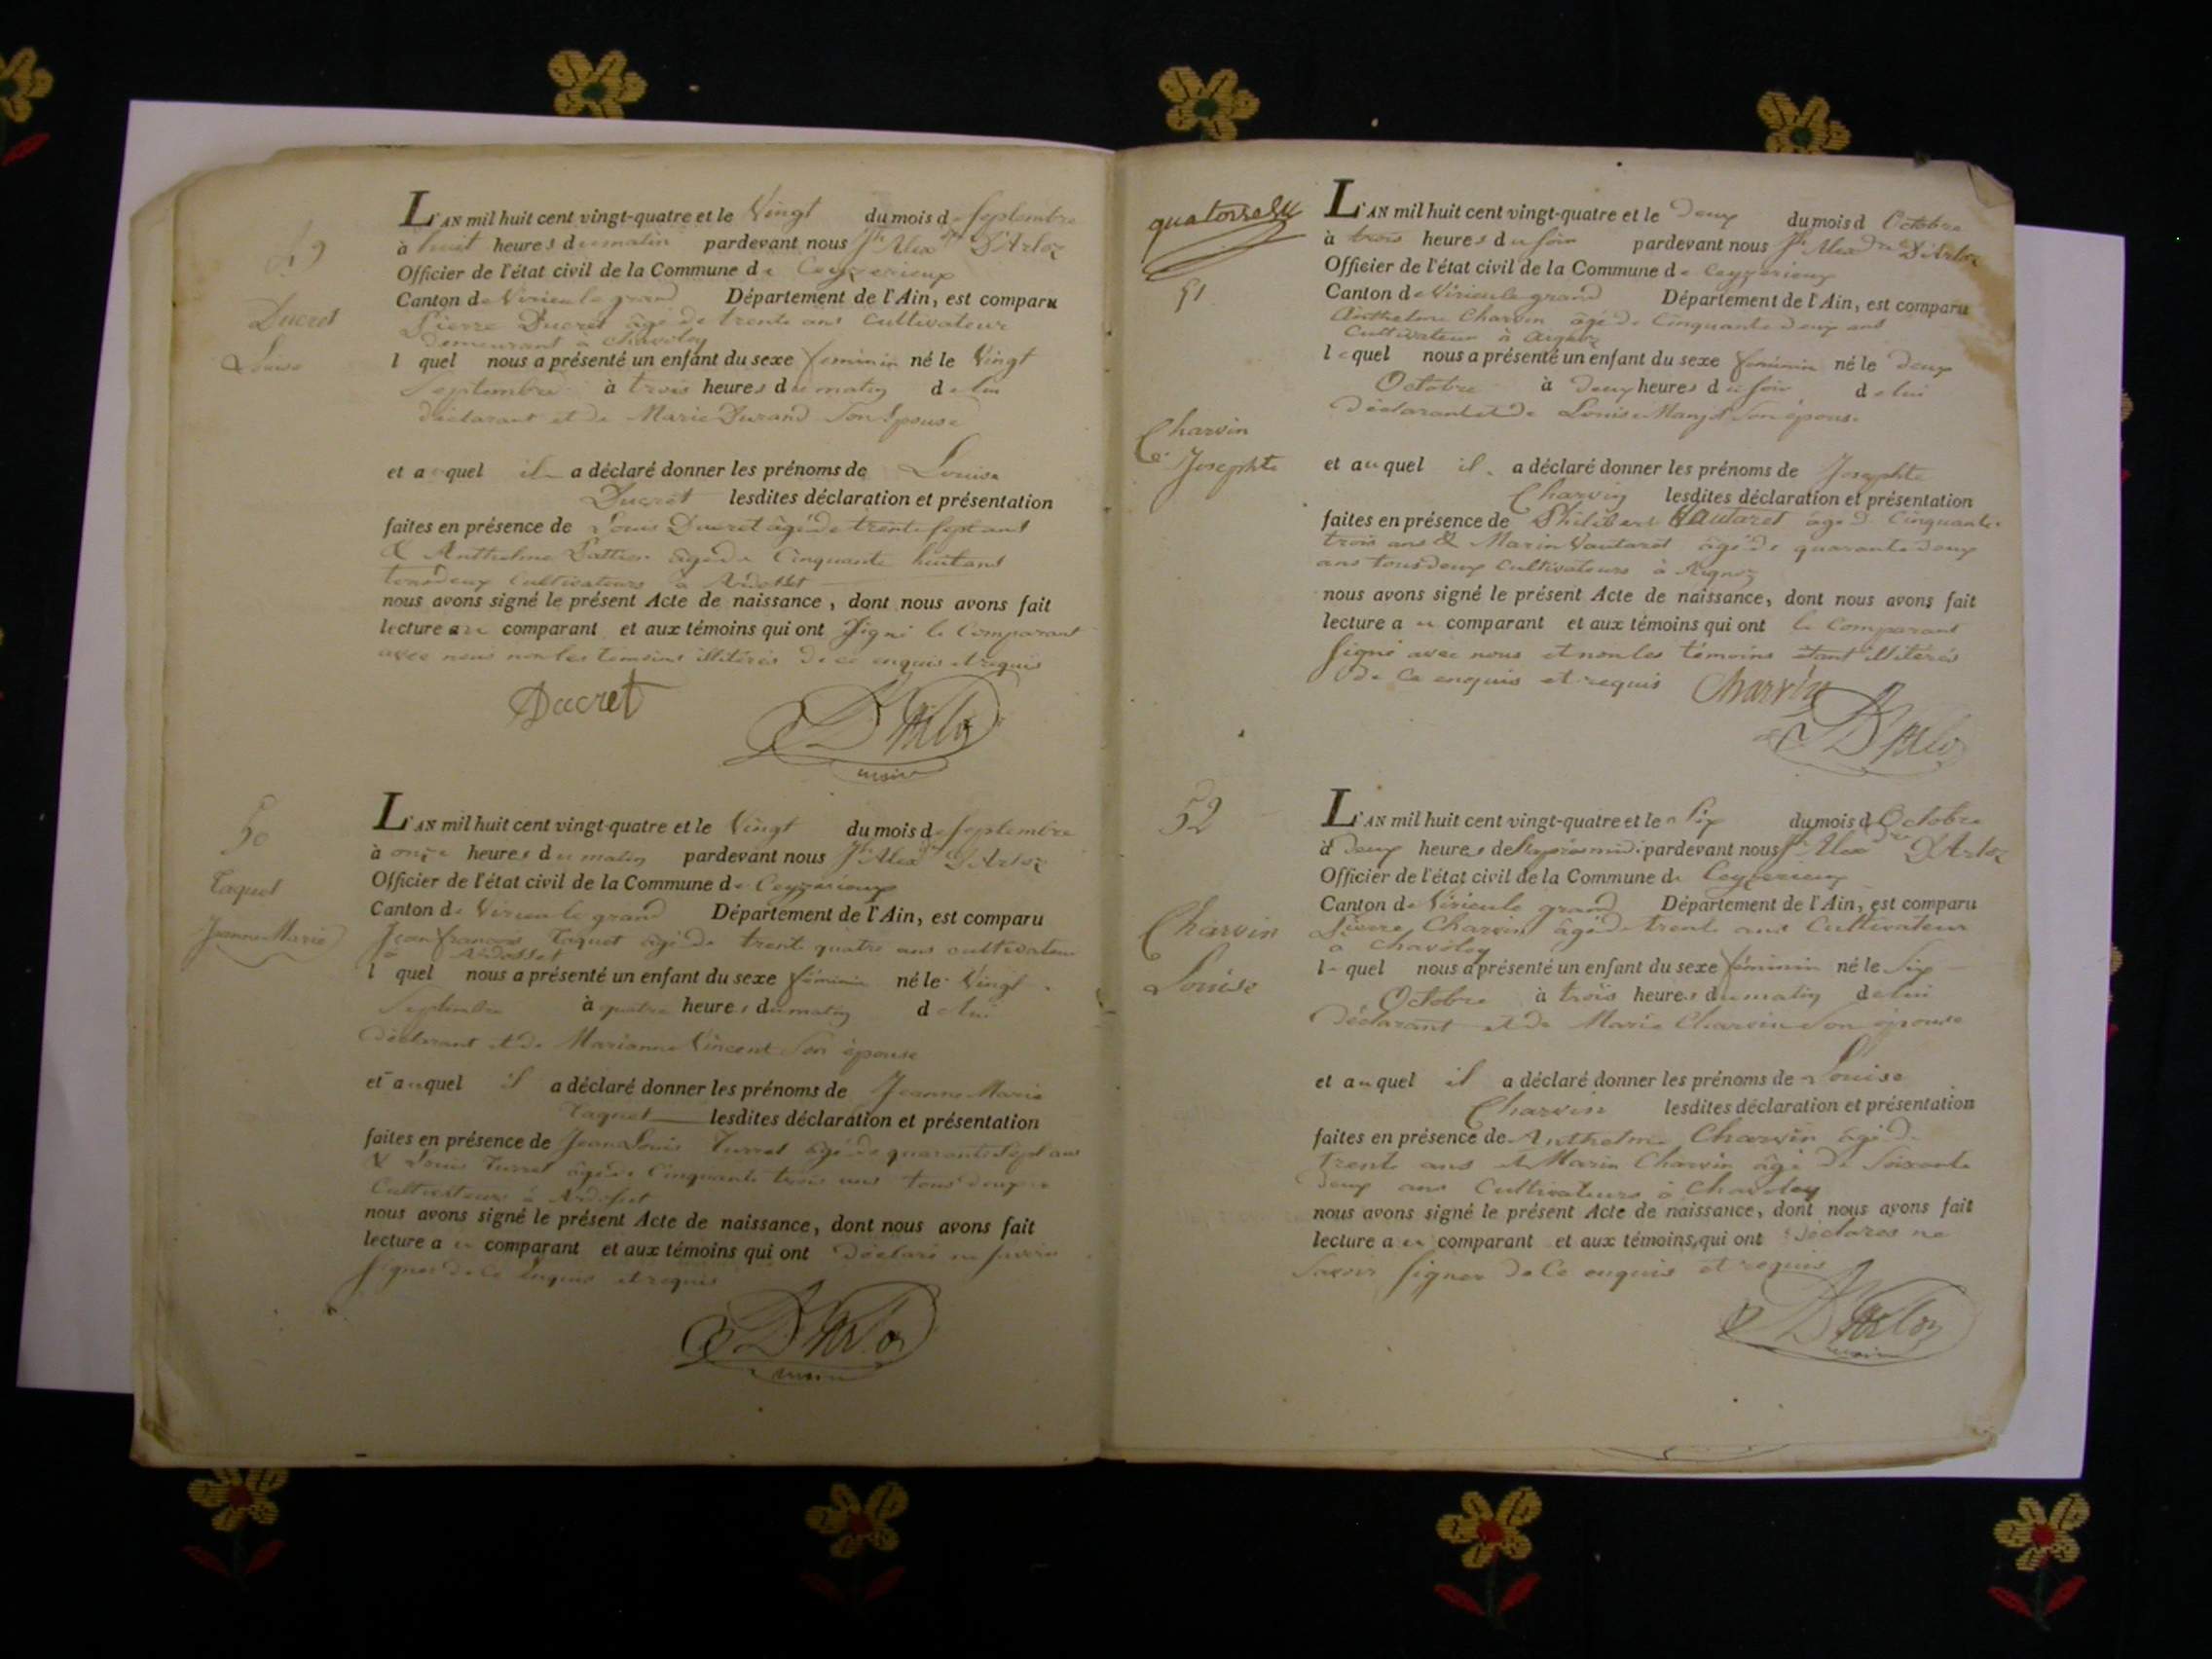 49
Ducret
Louise
L'AN mil huit cent vingt-quatre et le Vingt du mois de Septembre
à huit heures du matin pardevant nous Jh Alexdre D'Arloz
Officier de l'état civil de la Commune de Ceyzerieux
Canton de Virieu le grand Département de l'Ain, est comparu
Pierre Ducret âgé de trente ans cultivateur
demeurant à Chavoley
l quel nous a présenté un enfant du sexe feminin né le Vingt
Septembre à trois heures du matin de lui
déclarant et de Marie Durand Son épouse
et auquel il a déclaré donner les prénoms de Louise
Ducret lesdites déclaration et présentation
faites en présence de Louis Ducret âgé de trente sept ans
& Anthelme âgé de Cinquante huit ans
tous deux Cultivateurs à Ardosset
nous avons signé le présent Acte de naissance, dont nous avons fait
lecture au comparant et aux témoins qui ont Signé le Comparant
avec nous non les témoins illitérés de ce enquis et requis
Ducret
D'Arloz
maire
50
Taquet
Jeanne Marie
L'AN mil huit cent vingt-quatre et le Vingt du mois de Septembre
à onze heures du matin pardevant nous Jh Alexdre D'Arloz
Officier de l'état civil de la Commune de Ceyzerieux
Canton de Virieu le grand Département de l'Ain, est comparu
Jean françois Taquet âgé de trente quatre ans cultivateur
à Ardosset
l quel nous a présenté un enfant du sexe féminin né le Vingt
Septembre à quatre heures du matin de lui
déclarant et de Marianne Vincent Son épouse
et auquel il a déclaré donner les prénoms de Jeanne Marie
Taquet lesdites déclaration et présentation
faites en présence de Jean Louis Turrel âgé de quarante Sept ans
& Louis Turrel âgé de Cinquante trois ans tous deux
Cultivateurs à Ardosset
nous avons signé le présent Acte de naissance, dont nous avons fait
lecture au comparant et aux témoins qui ont Déclaré ne savoir
signer de Ce enquis et requis
D'Arloz
maire
quatorze
51
Charvin
Josephte
L'AN mil huit cent vingt-quatre et le Deux du mois d Octobre
à trois heures du soir pardevant nous Jh Alexdre D'Arloz
Officier de l'état civil de la Commune de Ceyzerieux
Canton de Virieu le grand Département de l'Ain, est comparu
Anthelme Charvin âgé de Cinquante deux ans
Cultivateur à Aignoz
lequel nous a présenté un enfant du sexe féminin né le deux
Octobre à Deux heures du soir de lui
Déclarant et de Louise Son épouse
et auquel il a déclaré donner les prénoms de Josephte
Charvin lesdites déclaration et présentation
faites en présence de Philibert Vautaret âgé de Cinquante
trois ans & Marin Vautaret âgé de quarante deux
ans tous deux Cultivateurs à Aignoz
nous avons signé le présent Acte de naissance, dont nous avons fait
lecture au comparant et aux témoins qui ont le Comparant
signé avec nous et non les témoins étant illitérés
De Ce enquis et requis Charvin
D'Arloz
52
Charvin
Louise
L'AN mil huit cent vingt-quatre et le Six du mois d Octobre
à Deux heures de l'après midi pardevant nous Jh Alexdre D'Arloz
Officier de l'état civil de la Commune de Ceyzerieux
Canton de Virieu le grand Département de l'Ain, est comparu
Pierre Charvin âgé de trente ans Cultivateur
à Chavoley
le quel nous a présenté un enfant du sexe féminin né le Six
Octobre à trois heures du matin de lui
Déclarant et de Marie Charvin Son épouse
et auquel il a déclaré donner les prénoms de Louise
Charvin lesdites déclaration et présentation
faites en présence de Anthelme Charvin âgé de
trente ans et Marin Charvin âgé de Soixante
Deux ans Cultivateurs à Chavoley
nous avons signé le présent Acte de naissance, dont nous avons fait
lecture au comparant et aux témoins, qui ont Déclarés ne
Savoir signer de Ce enquis et requis
D'Arloz
maire